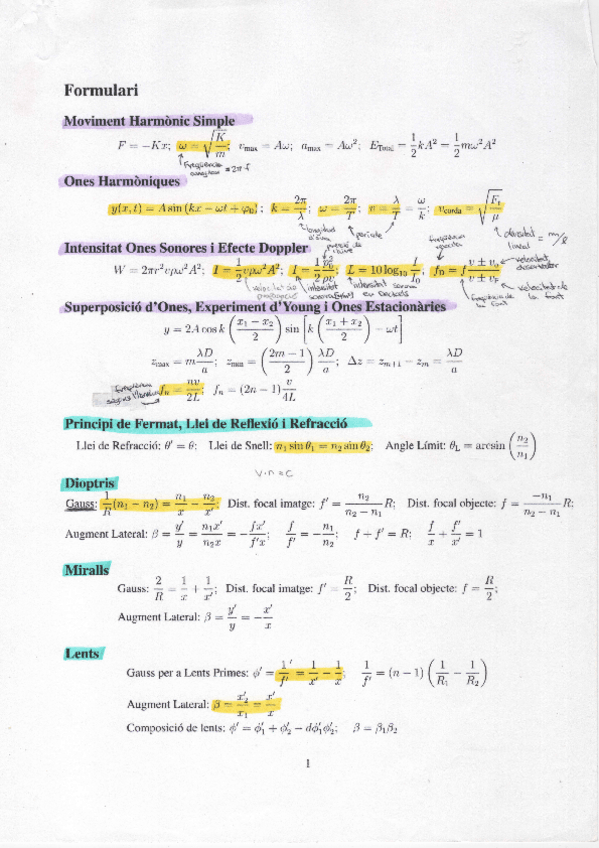 Formulari
Moviment Harmònic Simple
F = −Kx; ω = √(K/m); v_max = Aω; a_max = Aω²; E_Total = 1/2 kA² = 1/2 mω²A²
= 2π·f
Ones Harmòniques
y(x, t) = A sin (kx − ωt + φ₀); k = 2π/λ; ω = 2π/T; v = λ/T = ω/k; v_corda = √(F_t/μ)
longitud d'ona
període
densitat lineal = m/l
Intensitat Ones Sonores i Efecte Doppler
freqüència
W = 2πr²vρω²A²; I = 1/2 vρω²A²; I = 1/2 p₀²/ρv; L = 10 log₁₀ I/I₀; f_D = f (v ± v_o)/(v ± v_F)
velocitat observador
velocitat de propagació
intensitat sonora
intensitat sonora en decibels
freqüència de la font
velocitat de la font
Superposició d'Ones, Experiment d'Young i Ones Estacionàries
y = 2A cos k ((x₁ − x₂)/2) sin [k ((x₁ + x₂)/2) − ωt]
z_max = m λD/a; z_min = ((2m − 1)/2) λD/a; Δz = z_{m+1} − z_m = λD/a
freqüència
f_n = nv/2L; f_n = (2n − 1) v/4L
Principi de Fermat, Llei de Reflexió i Refracció
Llei de Refracció: θ′ = θ; Llei de Snell: n₁ sin θ₁ = n₂ sin θ₂; Angle Límit: θ_L = arcsin (n₂/n₁)
v·n = c
Dioptris
Gauss: 1/R (n₁ − n₂) = n₁/x − n₂/x′; Dist. focal imatge: f′ = n₂/(n₂ − n₁) R; Dist. focal objecte: f = −n₁/(n₂ − n₁) R;
Augment Lateral: β = y′/y = n₁x′/n₂x = −fx′/f′x; f/f′ = −n₁/n₂; f + f′ = R; f/x + f′/x′ = 1
Miralls
Gauss: 2/R = 1/x + 1/x′; Dist. focal imatge: f′ = R/2; Dist. focal objecte: f = R/2;
Augment Lateral: β = y′/y = −x′/x
Lents
Gauss per a Lents Primes: φ′ = 1/f′ = 1/x′ − 1/x; 1/f′ = (n − 1) (1/R₁ − 1/R₂)
Augment Lateral: β = x′₂/x₁ = x′/x
Composició de lents: φ′ = φ′₁ + φ′₂ − dφ′₁φ′₂; β = β₁β₂
1